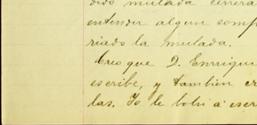 dido mulada
entender algun comp
riado la mulada.
Creo que D. Enriqu
escribe, y tambien cr
das. Yo le bolvi a escr